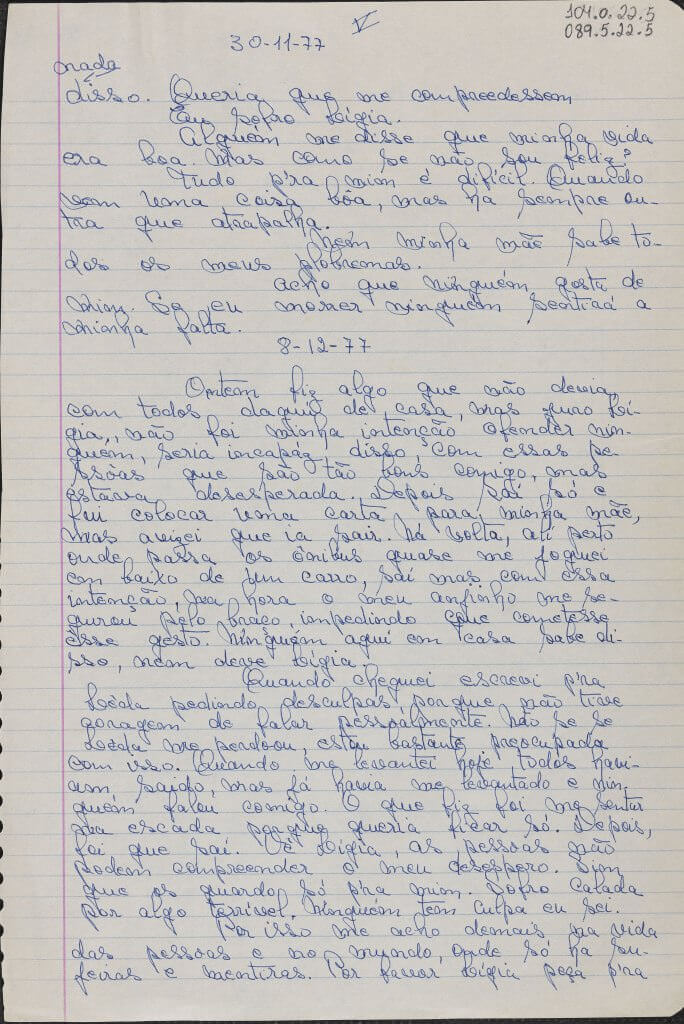 V
104.0.22.5
089.5.22.5
30-11-77
nada
disso. Queria que me compreedessem
Eu sofro Lígia.
Alguém me disse que minha vida
era boa. Mas como se não sou feliz?
Tudo p'ra mim é difícil. Quando
vem uma coisa bôa, mas há sempre ou-
tra que atrapalha.
Nem minha mãe sabe to-
dos os meus problemas.
Acho que ninguém gosta de
mim. Se eu morrer ninguém sentirá a
minha falta.
8-12-77
Ontem fiz algo que não devia,
com todos daqui de casa, mas juro Lí-
gia, não foi minha intenção ofender nin-
guém, seria incapáz, disso, com essas pe-
ssôas que são tão bons comigo, mas
estava desesperada. Depois saí só e
fui colocar uma carta para minha mãe,
mas avizei que ia sair. Na volta, ati perto
onde passa os ônibus quase me joguei
em baixo de um carro, saí mas com essa
intenção, na hora o meu anjinho me se-
gurou pelo braço, impedindo que cometesse
êsse gesto. Ninguém aqui em casa sabe di-
sso, nem deve Lígia.
Quando cheguei escrevi p'ra
Lêda pedindo desculpas, porque não tive
coragem de falar pessoalmente. Não se se
Lêda me perdôou, estou bastante preocupada
com isso. Quando me levantei hoje todos havi-
am saido, mas já havia me levantado e nin-
guém falou comigo. O que fiz foi me sentar
na escada porque queria ficar só. Depois,
foi que saí. Vê Lígia, as pessoas não
podem compreender o meu desespero. Sim
que os guardo só p'ra mim. Sofro calada
por algo terrível. Ninguém tem culpa eu sei.
Por isso me acho demais na vida
das pessoas e no mundo, onde só há su-
jeiras e mentiras. Por favor Lígia peça p'ra